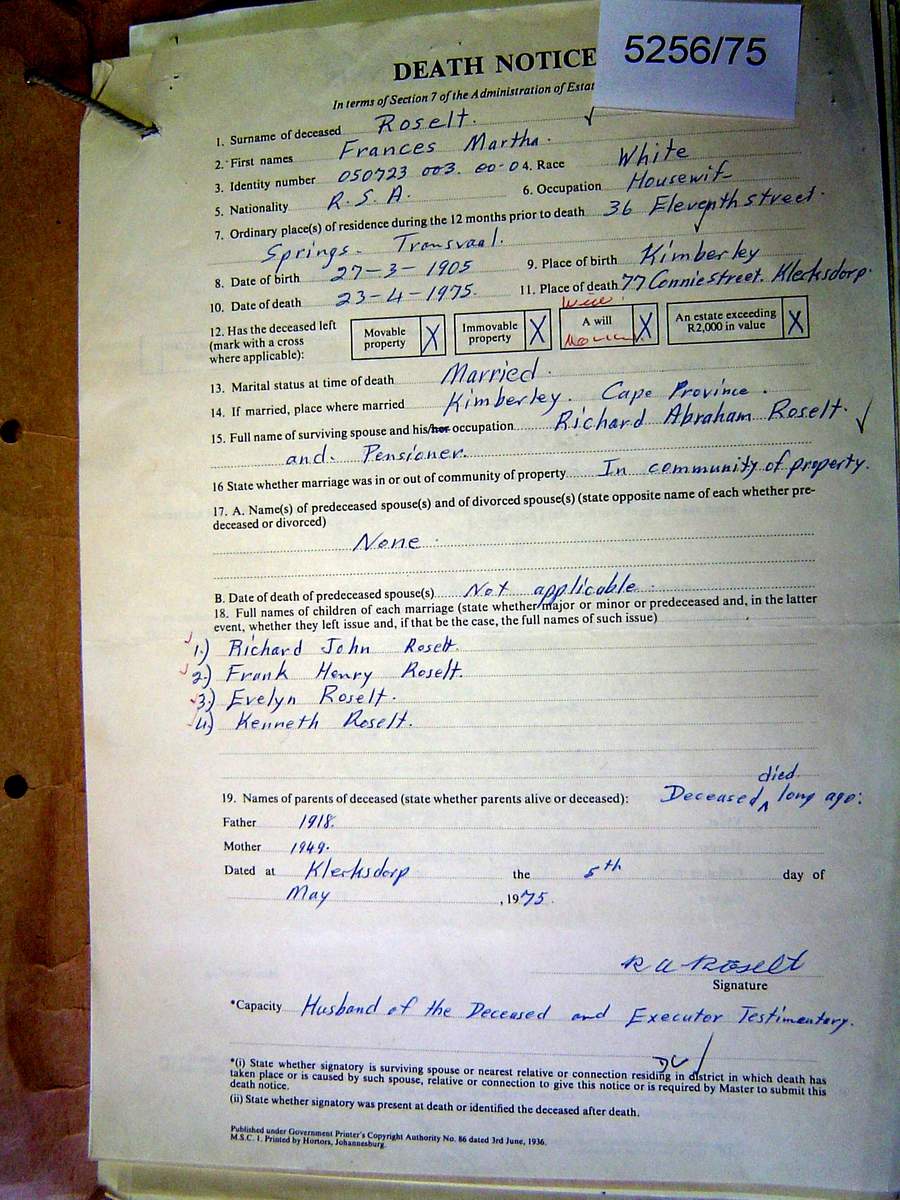 5256/75
DEATH NOTICE
In terms of Section 7 of the Administration of Estat
1. Surname of deceased Roselt.
2. First names Frances Martha.
3. Identity number 050723 003. 00-0 4. Race White
5. Nationality R.S.A. 6. Occupation Housewif
7. Ordinary place(s) of residence during the 12 months prior to death 36 Eleventh street.
Springs. Transvaal.
8. Date of birth 27-3-1905 9. Place of birth Kimberley
10. Date of death 23-4-1975. 11. Place of death 77 Connie street. Klerksdorp.
12. Has the deceased left
(mark with a cross
where applicable):
Movable
property X
Immovable
property X
A will X
An estate exceeding
R2,000 in value X
13. Marital status at time of death Married.
14. If married, place where married Kimberley. Cape Province.
15. Full name of surviving spouse and his/her occupation Richard Abraham Roselt.
and. Pensioner.
16 State whether marriage was in or out of community of property In community of property.
17. A. Name(s) of predeceased spouse(s) and of divorced spouse(s) (state opposite name of each whether pre-
deceased or divorced)
None.
B. Date of death of predeceased spouse(s) Not applicable.
18. Full names of children of each marriage (state whether major or minor or predeceased and, in the latter
event, whether they left issue and, if that be the case, the full names of such issue)
1.) Richard John Roselt.
2.) Frank Henry Roselt.
3.) Evelyn Roselt.
4.) Kenneth Roselt.
19. Names of parents of deceased (state whether parents alive or deceased): Deceased, died long ago:
Father 1918.
Mother 1949.
Dated at Klerksdorp the 5th day of
May , 1975.
R A Roselt
Signature
*Capacity Husband of the Deceased and Executor Testimentary.
*(i) State whether signatory is surviving spouse or nearest relative or connection residing in district in which death has
taken place or is caused by such spouse, relative or connection to give this notice or is required by Master to submit this
death notice.
(ii) State whether signatory was present at death or identified the deceased after death.
Published under Government Printer's Copyright Authority No. 86 dated 3rd June, 1936.
M.S.C. 1. Printed by Hortors, Johannesburg.